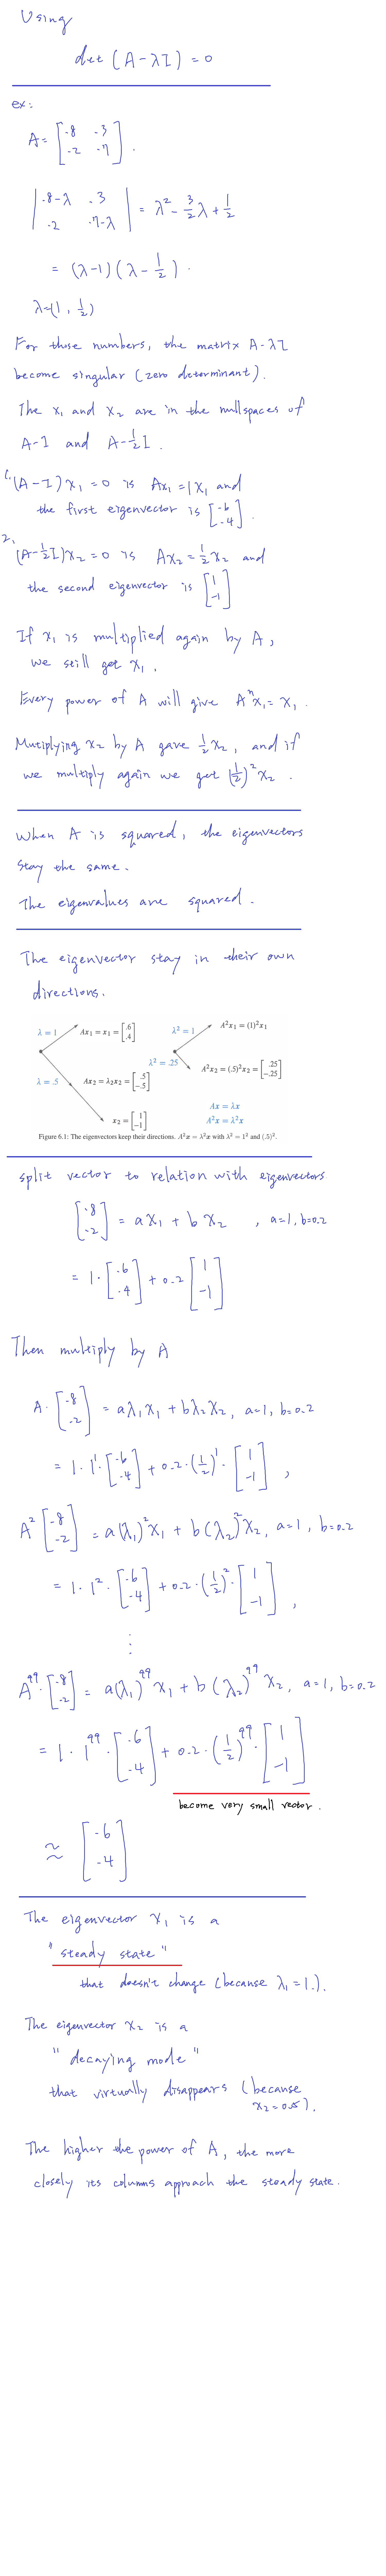 Using
det (A - λI) = 0
ex:
A = [.8 .3; .2 .7].
|.8-λ .3; .2 .7-λ| = λ² - 3/2 λ + 1/2
= (λ-1)(λ - 1/2).
λ=(1, 1/2)
For those numbers, the matrix A-λI
become singular (zero determinant).
The x₁ and x₂ are in the nullspaces of
A-I and A-1/2 I.
1. (A-I)x₁ = 0 is Ax₁ = 1x₁ and
the first eigenvector is [.6; .4].
2. (A-1/2 I)x₂ = 0 is Ax₂ = 1/2 x₂ and
the second eigenvector is [1; -1]
If x₁ is multiplied again by A,
we still get x₁.
Every power of A will give Aⁿx₁ = x₁.
Mutiplying x₂ by A gave 1/2 x₂, and if
we multiply again we get (1/2)² x₂.
When A is squared, the eigenvectors
stay the same.
The eigenvalues are squared.
The eigenvector stay in their own
directions.
λ = 1 Ax₁ = x₁ = [.6; .4] λ² = 1 A²x₁ = (1)²x₁
λ = .5 Ax₂ = λ₂x₂ = [.5; -.5] λ² = .25 A²x₂ = (.5)²x₂ = [.25; -.25]
x₂ = [1; -1] Ax = λx
A²x = λ²x
Figure 6.1: The eigenvectors keep their directions. A²x = λ²x with λ² = 1² and (.5)².
split vector to relation with eigenvectors
[.8; .2] = a x₁ + b x₂ , a=1, b=0.2
= 1·[.6; .4] + 0.2 [1; -1]
Then multiply by A
A·[.8; .2] = aλ₁x₁ + bλ₂x₂, a=1, b=0.2
= 1·1¹·[.6; .4] + 0.2·(1/2)¹·[1; -1] ,
A²[.8; .2] = a(λ₁)²x₁ + b(λ₂)²x₂, a=1, b=0.2
= 1·1²·[.6; .4] + 0.2·(1/2)²·[1; -1] ,
⋮
A⁹⁹·[.8; .2] = a(λ₁)⁹⁹x₁ + b(λ₂)⁹⁹x₂, a=1, b=0.2
= 1·1⁹⁹·[.6; .4] + 0.2·(1/2)⁹⁹·[1; -1]
become very small vector.
≈ [.6; .4]
The eigenvector x₁ is a
"steady state"
that doesn't change (because λ₁=1.).
The eigenvector x₂ is a
"decaying mode"
that virtually disappears (because
x₂=0.5).
The higher the power of A, the more
closely its columns approach the steady state.